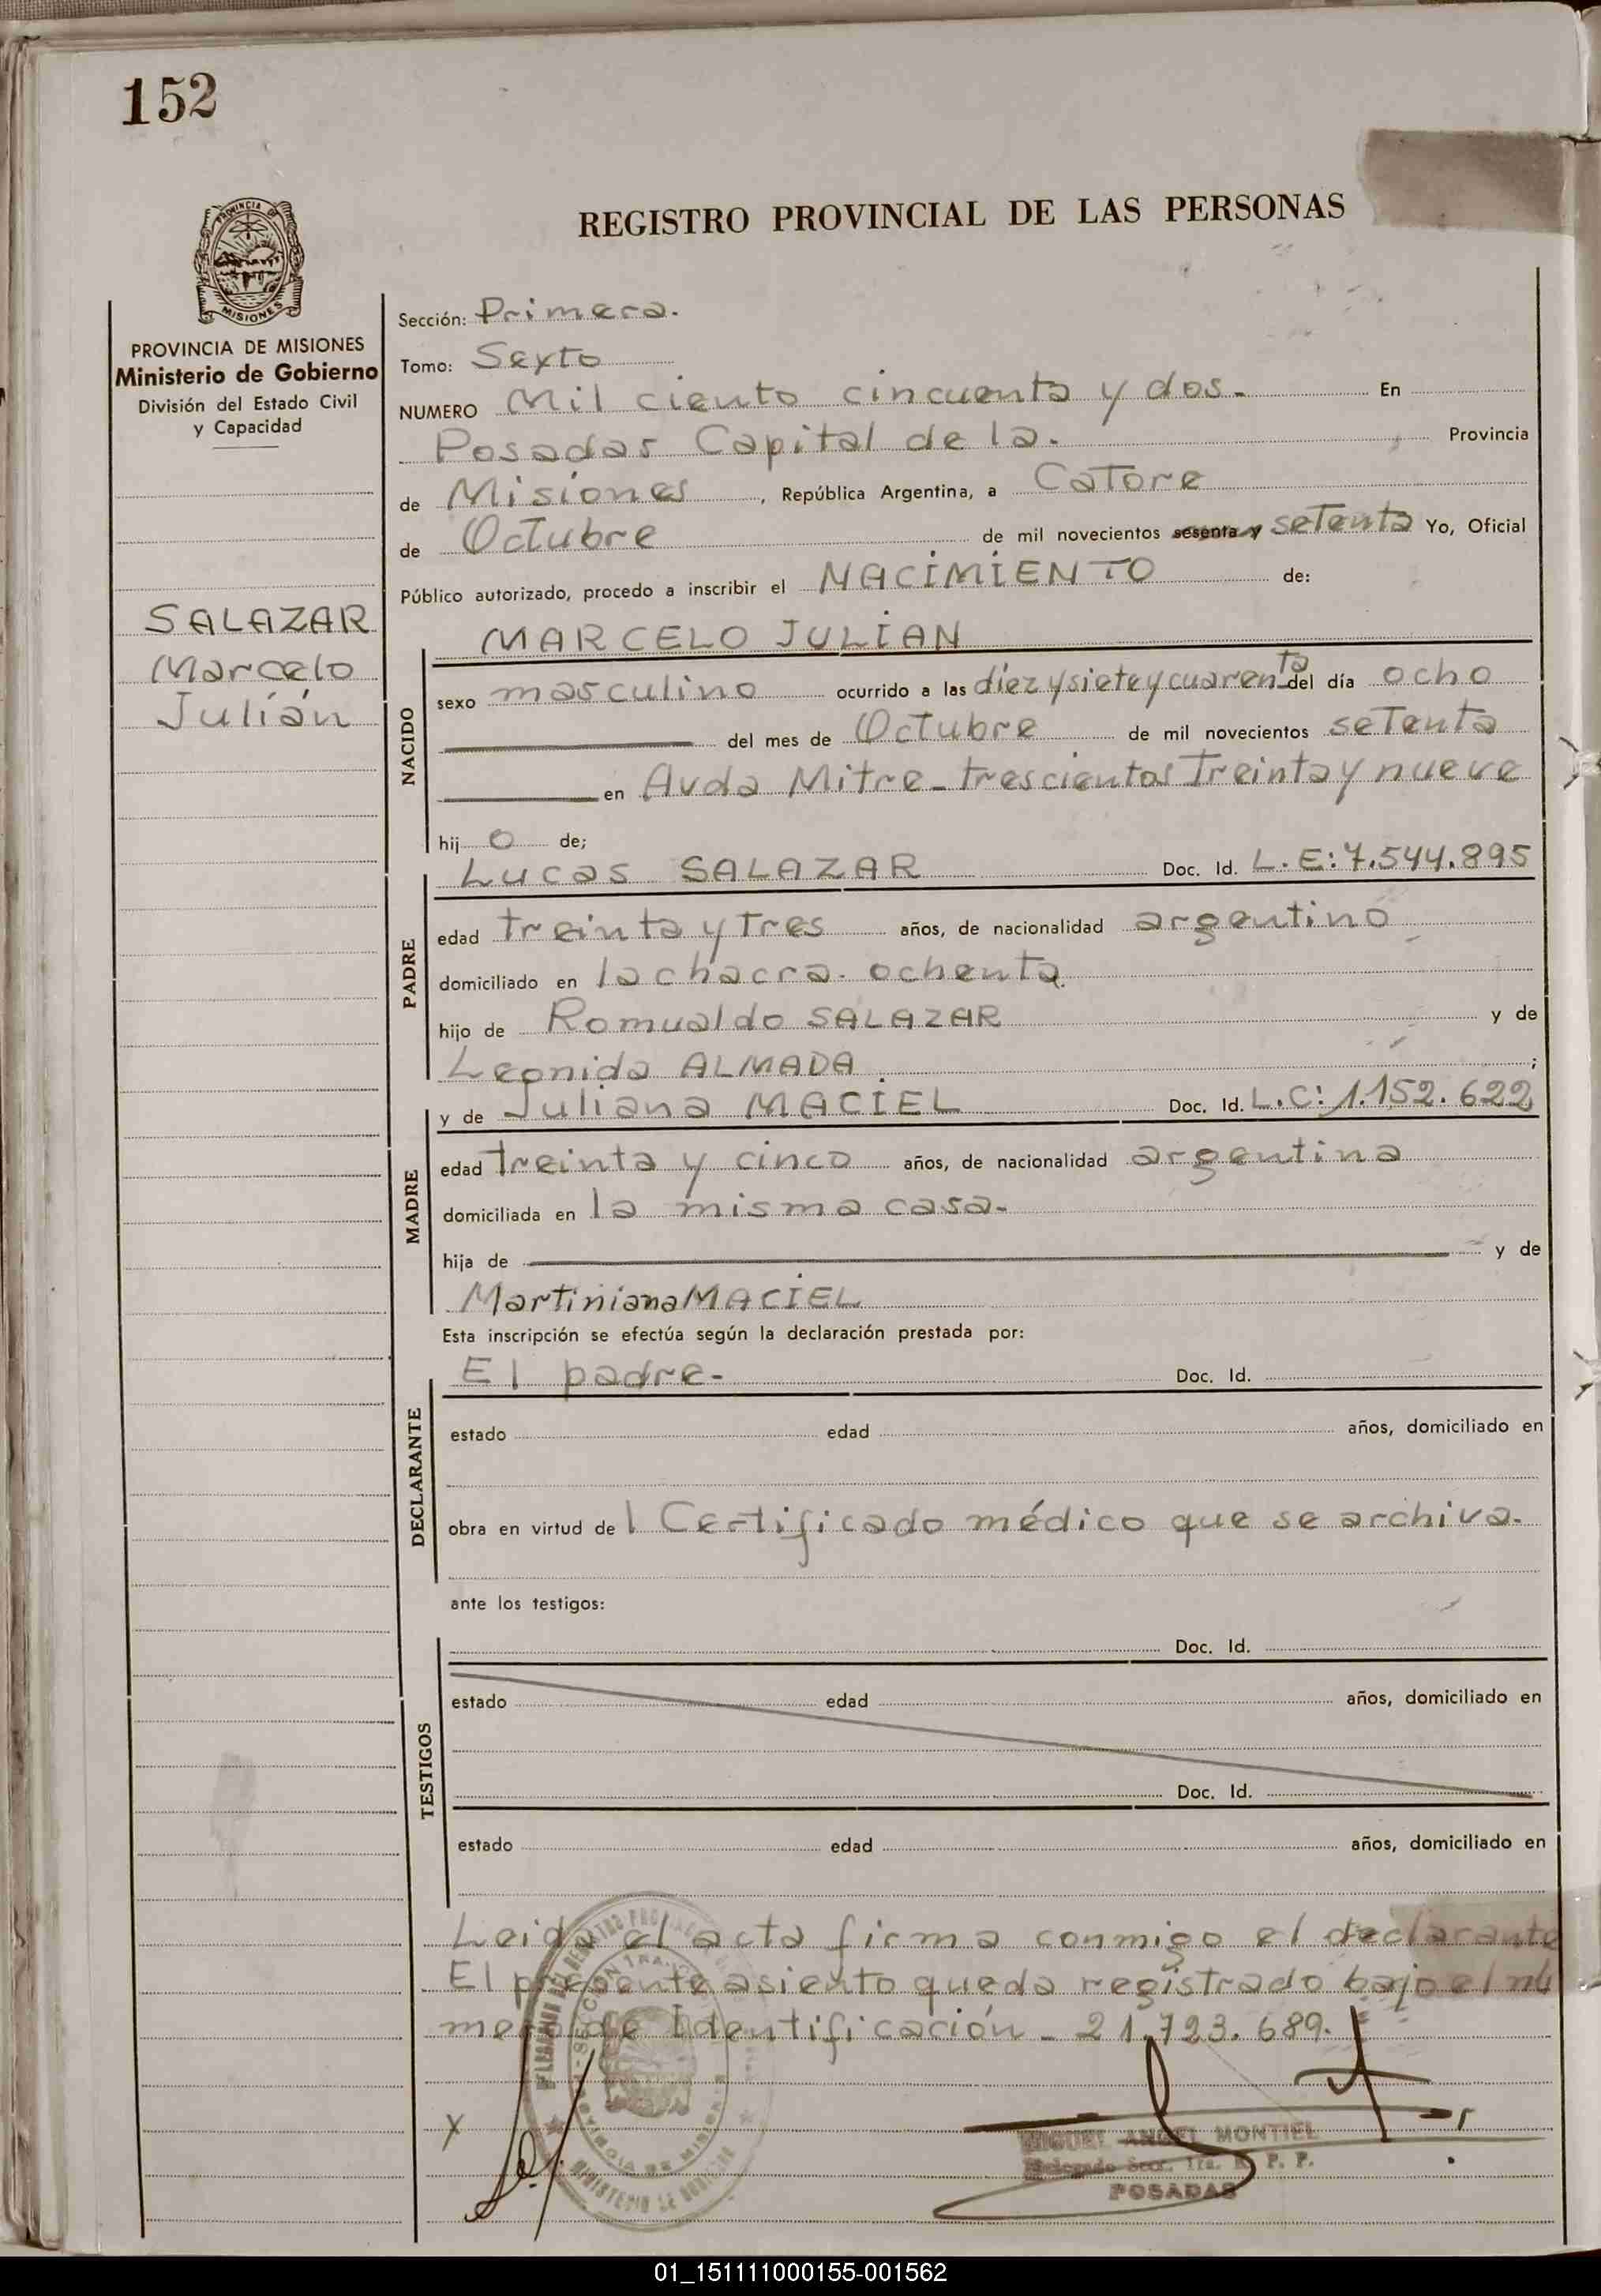 152
REGISTRO PROVINCIAL DE LAS PERSONAS
PROVINCIA DE
MISIONES
PROVINCIA DE MISIONES
Ministerio de Gobierno
División del Estado Civil
y Capacidad
SALAZAR
Marcelo
Julián
Sección: Primera.
Tomo: Sexto
NUMERO Mil ciento cincuenta y dos. En
Posadas Capital de la. Provincia
de Misiones, República Argentina, a Catorce
de Octubre de mil novecientos sesenta y setenta Yo, Oficial
Público autorizado, procedo a inscribir el NACIMIENTO de:
MARCELO JULIAN
NACIDO
sexo masculino ocurrido a las diez y siete y cuarenta del día ocho
del mes de Octubre de mil novecientos setenta
en Avda Mitre - trescientos treinta y nueve
hijo de;
Lucas SALAZAR Doc. Id. L.E: 7.544.895
PADRE
edad treinta y tres años, de nacionalidad argentino
domiciliado en la chacra ochenta.
hijo de Romualdo SALAZAR y de
Leonida ALMADA ;
y de Juliana MACIEL Doc. Id. L.C: 1.152.622
MADRE
edad treinta y cinco años, de nacionalidad argentina
domiciliada en la misma casa.
hija de y de
Martiniana MACIEL
Esta inscripción se efectúa según la declaración prestada por:
El padre- Doc. Id.
DECLARANTE
estado edad años, domiciliado en
obra en virtud del Certificado médico que se archiva.
ante los testigos:
Doc. Id.
TESTIGOS
estado edad años, domiciliado en
Doc. Id.
estado edad años, domiciliado en
Leida el acta firma conmigo el declarante
El presente asiento queda registrado bajo el nú
mero de Identificación - 21.723.689.
x
MIGUEL ANGEL MONTIEL
POSADAS
01_151111000155-001562